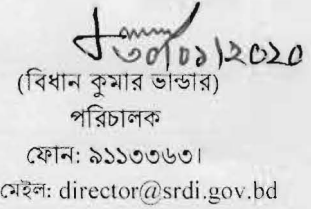 ৩০/০১/২০২০
(বিধান কুমার ভান্ডার)
পরিচালক
ফোন: ৯১১৩৩৬৩।
মেইল: director@srdi.gov.bd